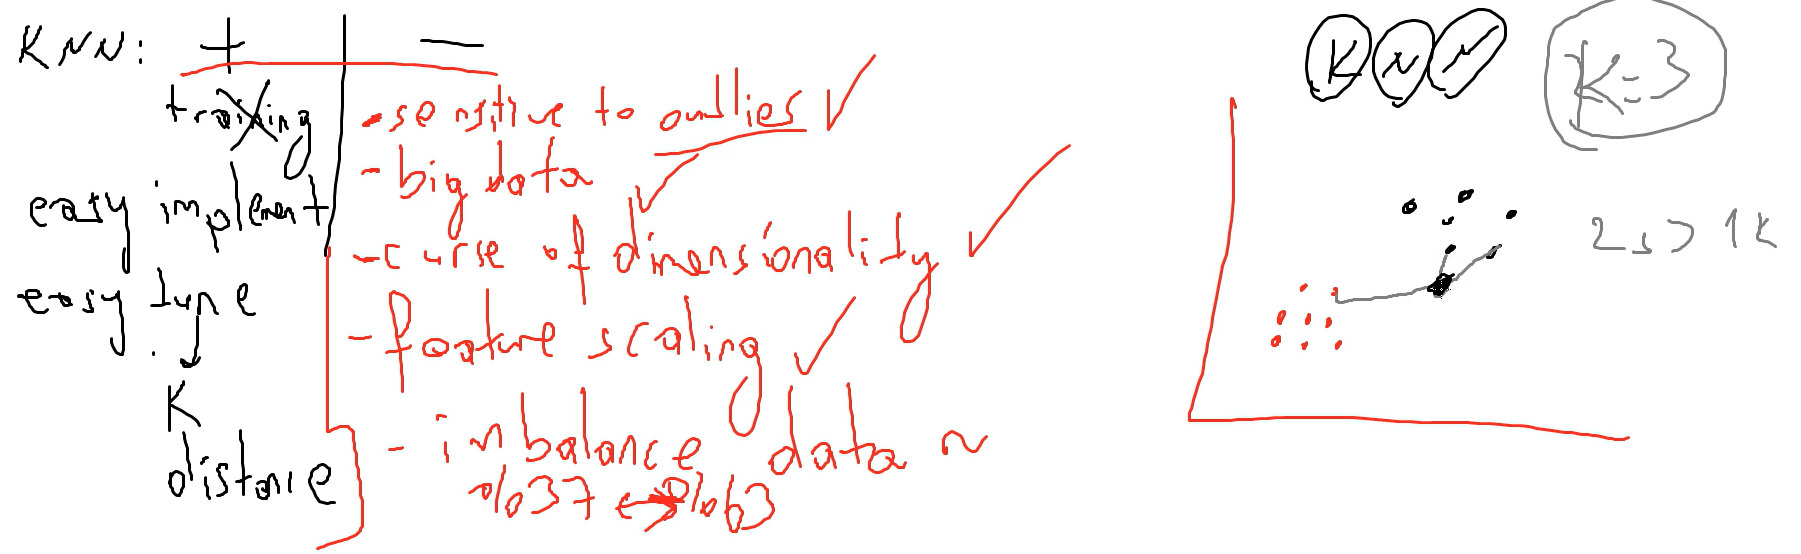 KNN: + -
training
easy implement
easy tune
K
distance
- sensitive to outlies
- big data
- curse of dimensionality
- feature scaling
- inbalance data ~
%37 ↔ %63
KNN
K=3
2s > 1k